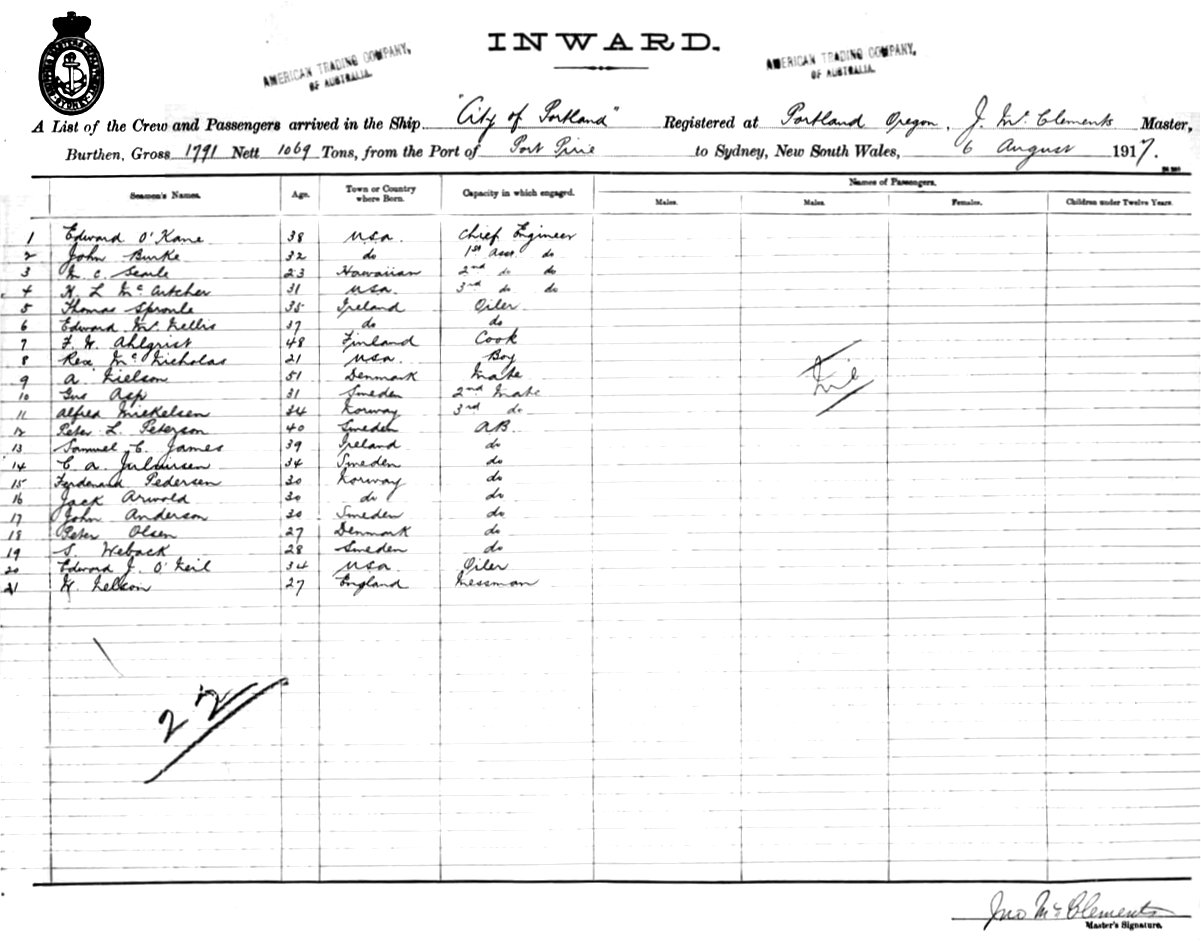 INWARD.
AMERICAN TRADING COMPANY,
OF AUSTRALIA.
AMERICAN TRADING COMPANY,
OF AUSTRALIA.
A List of the Crew and Passengers arrived in the Ship "City of Portland" Registered at Portland Oregon, J. Mc Clements Master,
Burthen, Gross 1791 Nett 1069 Tons, from the Port of Port Pirie to Sydney, New South Wales, 6 August 1917.
Seamen's Names. Age. Town or Country where Born. Capacity in which engaged. Names of Passengers.
Males. Males. Females. Children under Twelve Years.
1 Edward O'Kane 38 USA. Chief Engineer
2 John Burke 32 do 1st Asst. do
3 M. C. Searle 23 Hawaiian 2nd do do
4 H. L. Mc Cutcher 31 USA. 3rd do do
5 Thomas Sproule 35 Ireland Oiler
6 Edward Mc Nellis 37 do do
7 F. W. Ahlqvist 48 Finland Cook
8 Rex Mc Nicholas 21 USA. Boy
9 A. Nielson 51 Denmark Mate
10 Gus Asp 31 Sweden 2nd Mate
11 Alfred Mickelsen 34 Norway 3rd do
12 Peter L. Peterson 40 Sweden AB.
13 Samuel C. James 39 Ireland do
14 C. A. 34 Sweden do
15 Ferdenand Pedersen 30 Norway do
16 Jack Arwold 30 do do
17 John Anderson 30 Sweden do
18 Peter Olsen 27 Denmark do
19 S. Weback 28 Sweden do
20 Edward J. O'Neil 34 USA. Oiler
21 W. Nelson 27 England Messman
Nil
22
Jno Mc Clements
Master's Signature.